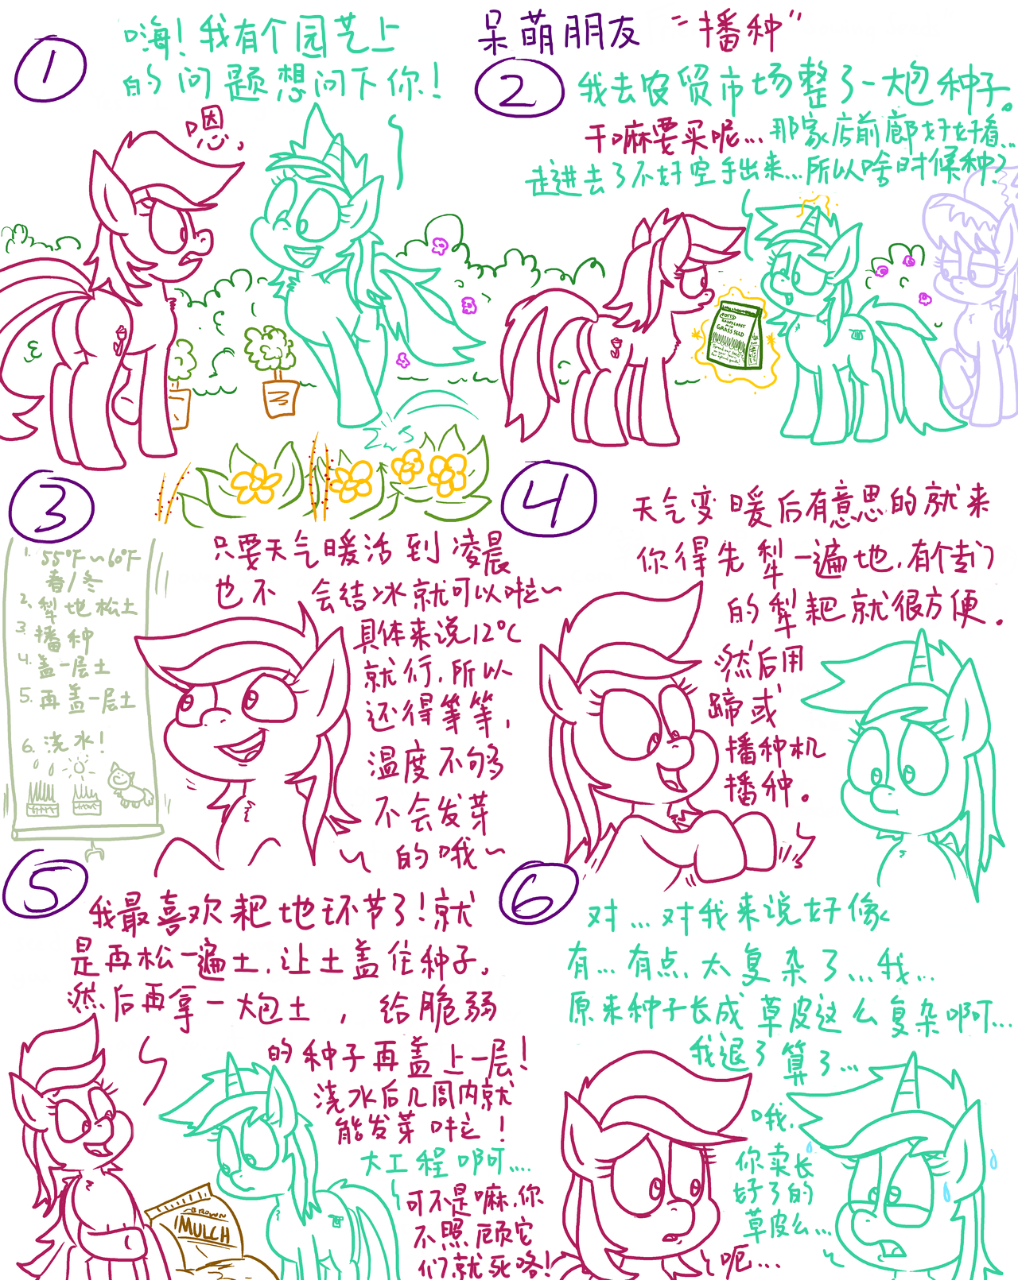 呆萌朋友 “播种”
①
嗨！我有个园艺上
的问题想问下你！
嗯，
②
我去农贸市场整了一大包种子。
干嘛要买呢...那家店前廊好好看...
走进去了不好空手出来...所以啥时候种？
GRASS SEED
③
1. 55°F~60°F
春/冬
2. 犁地松土
3. 播种
4. 盖一层土
5. 再盖一层土
6. 浇水！
只要天气暖活到凌晨
也不会结冰就可以啦~
具体来说12°C
就行，所以
还得等等，
温度不够
不会发芽
的哦~
④
天气变暖后有意思的就来
你得先犁一遍地，有个专门
的犁耙就很方便。
然后用
蹄或
播种机
播种。
⑤
我最喜欢耙地环节了！就
是再松一遍土，让土盖住种子，
然后再拿一大包土，给脆弱
的种子再盖上一层！
浇水后几周内就
能发芽哒！
大工程啊...
可不是嘛，你
不照顾它
们就死咯！
BROWN
MULCH
⑥
对...对我来说好像
有...有点太复杂了...我...
原来种子长成草皮这么复杂啊...
我退了算了...
哦，
你卖长
好了的
草皮么...
呃...